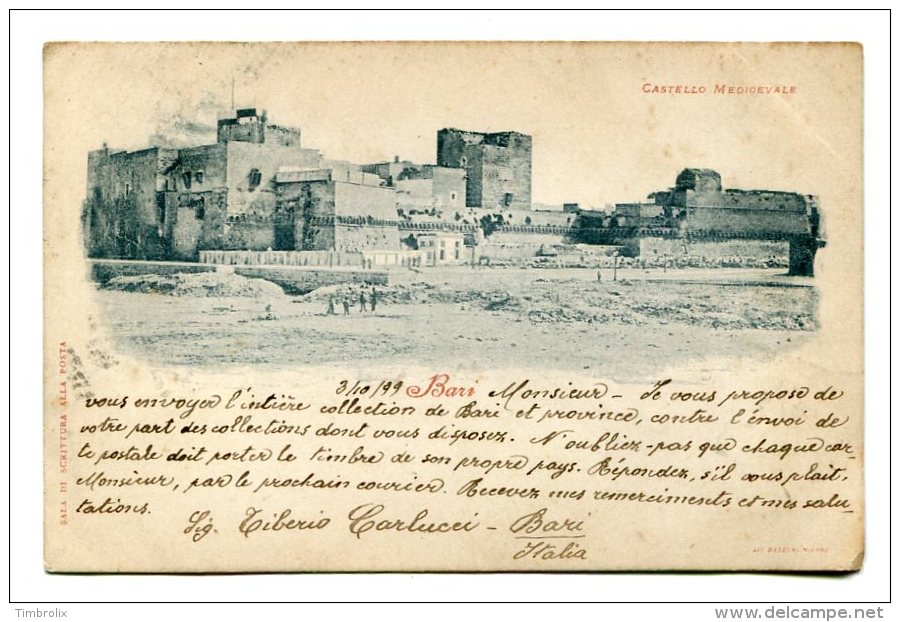 CASTELLO MEDIOEVALE
SALA DI SCRITTURA ALLA POSTA
3/10/99 Bari Monsieur - Je vous propose de
vous envoyer l'intière collection de Bari et province, contre l'envoi de
votre part des collections dont vous disposez. N'oubliez-pas que chaque car-
te postale doit porter le timbre de son propre pays. Répondez, s'il vous plait,
Monsieur, par le prochain courier. Recevez mes remerciments et mes salu-
tations.
Sig. Tiberio Carlucci - Bari
Italia
Timbrolix
http://www.delcampe.net